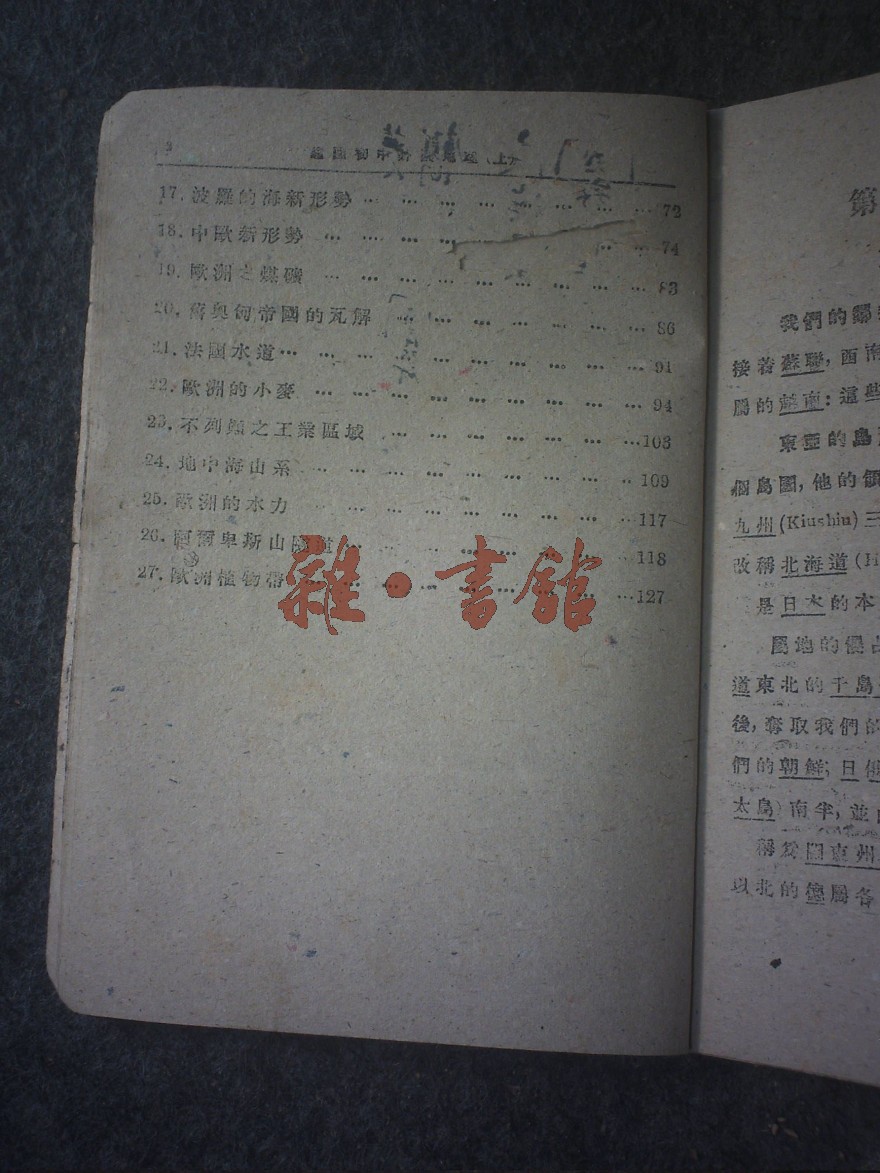 17. 波羅的海新形勢 … … … … … … … … 72
18. 中歐新形勢 … … … … … … 74
19. 歐洲之煤礦 … … … … … … … … … 83
20. 舊奧匈帝國的瓦解 … … … … … … … 86
21. 法國水道… … … … … … … … … … 91
22. 歐洲的小麥 … … … … … … … … … 94
23. 不列顛之工業區域 … … … … … … …103
24. 地中海山系 … … … … … … … … 109
25. 歐洲的水力 … … … … … … … … …117
26. 阿爾卑斯山隧道 … … … … … … …118
27. 歐洲植物帶 … … … … … … … … …127
雜·書館
第
我們的鄰
接着蘇聯，西南
屬的越南：這些
東亞的島
個島國，他的領
九州(Kiushiu)三
改稱北海道(H
是日本的本
屬地的侵占
道東北的千島
後，奪取我們的
們的朝鮮；日俄
太島)南半，並
稱爲關東州
以北的德屬各